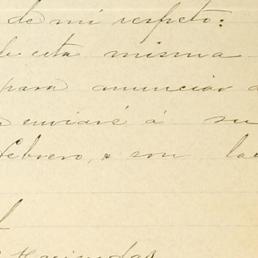 de mi respeto:
de esta misma
para anunciar
enviaré á su
febrero, son las